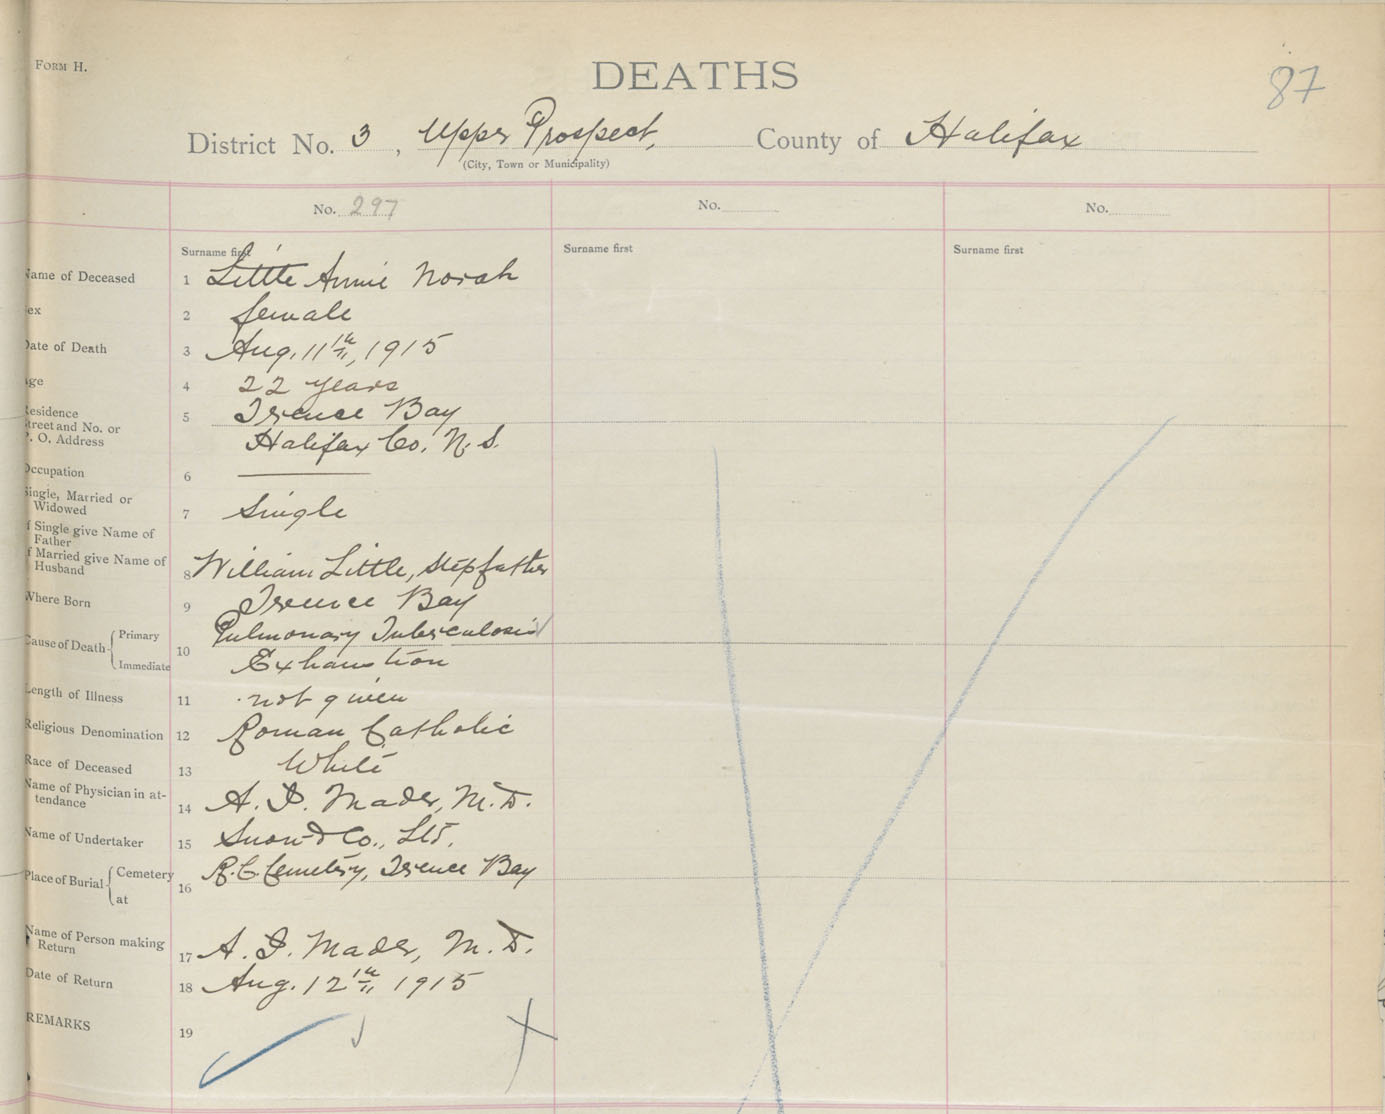 FORM H.
DEATHS
87
District No. 3, Upper Prospect, County of Halifax
(City, Town or Municipality)
No. 297
No.
No.
Surname first
Surname first
Surname first
Name of Deceased 1 Little Annie Norah
Sex 2 female
Date of Death 3 Aug. 11th, 1915
Age 4 22 years
Residence
Street and No. or
P. O. Address
5 Terence Bay
Halifax Co. N. S.
Occupation 6
Single, Married or
Widowed
7 Single
If Single give Name of
Father
If Married give Name of
Husband
8 William Little, Stepfather
Where Born 9 Terence Bay
Cause of Death Primary 10 Pulmonary Tuberculosis
Immediate Exhaustion
Length of Illness 11 not given
Religious Denomination 12 Roman Catholic
Race of Deceased 13 White
Name of Physician in at-
tendance
14 A. I. Mader, M. D.
Name of Undertaker 15 Snow & Co., Ltd.
Place of Burial Cemetery 16 R. C. Cemetery, Terence Bay
at
Name of Person making
Return
17 A. I. Mader, M. D.
Date of Return 18 Aug. 12th, 1915
REMARKS 19